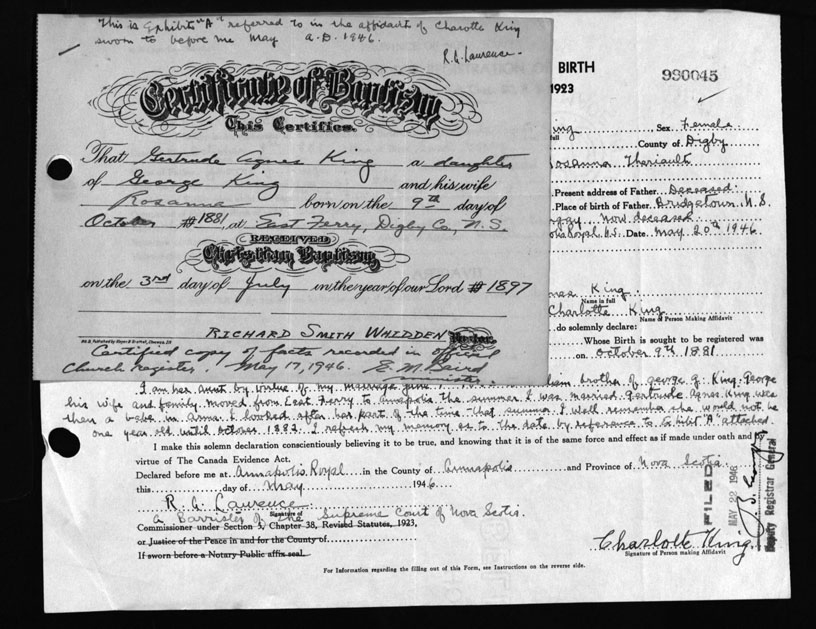 This is Exhibit "A" referred to in the affidavit of Charlotte King
sworn to before me May A.D. 1946.
R. G. Laurence.
Certificate of Baptism
This Certifies.
That Gertrude Agnes King a daughter
of George King and his wife
Rosanna born on the 9th day of
October #1881 at East Ferry, Digby Co, N.S.
RECEIVED
Christian Baptism
on the 3rd day of July in the year of our Lord #1897
RICHARD SMITH WHIDDEN
Certified copy of facts recorded in official
Church register. May 17, 1946. E. M. Baird
minister
BIRTH
990045
1923
King Sex Female
County of Digby
Rosanna Theriault
Present address of Father Deceased
Place of birth of Father Bridgetown N.S.
now deceased
Date May 20th 1946
King
Name in full
Charlotte King
Name of Person Making Affidavit
do solemnly declare:
Whose Birth is sought to be registered was
on October 9th 1881
I am her aunt by virtue of my marriage brother of George G. King. George
his wife and family moved from East Ferry to Annapolis the summer I was married. Gertrude Agnes King was
then a babe in arms. I looked after her part of the time that summer. I well remember she would not be
one year old until October 1882. I refresh my memory as to the date by reference to Exhibit "A" attached
I make this solemn declaration conscientiously believing it to be true, and knowing that it is of the same force and effect as if made under oath and by
virtue of The Canada Evidence Act.
Declared before me at Annapolis Royal in the County of Annapolis and Province of Nova Scotia
this day of May 1946
R. G. Laurence
Signature of
A Barrister of the Supreme Court of Nova Scotia
Commissioner under Section 3, Chapter 38, Revised Statutes, 1923,
or Justice of the Peace in and for the County of
If sworn before a Notary Public affix seal.
Charlotte King
Signature of Person making Affidavit
FILED
MAY 22 1946
Deputy Registrar General
For Information regarding the filling out of this Form, see Instructions on the reverse side.